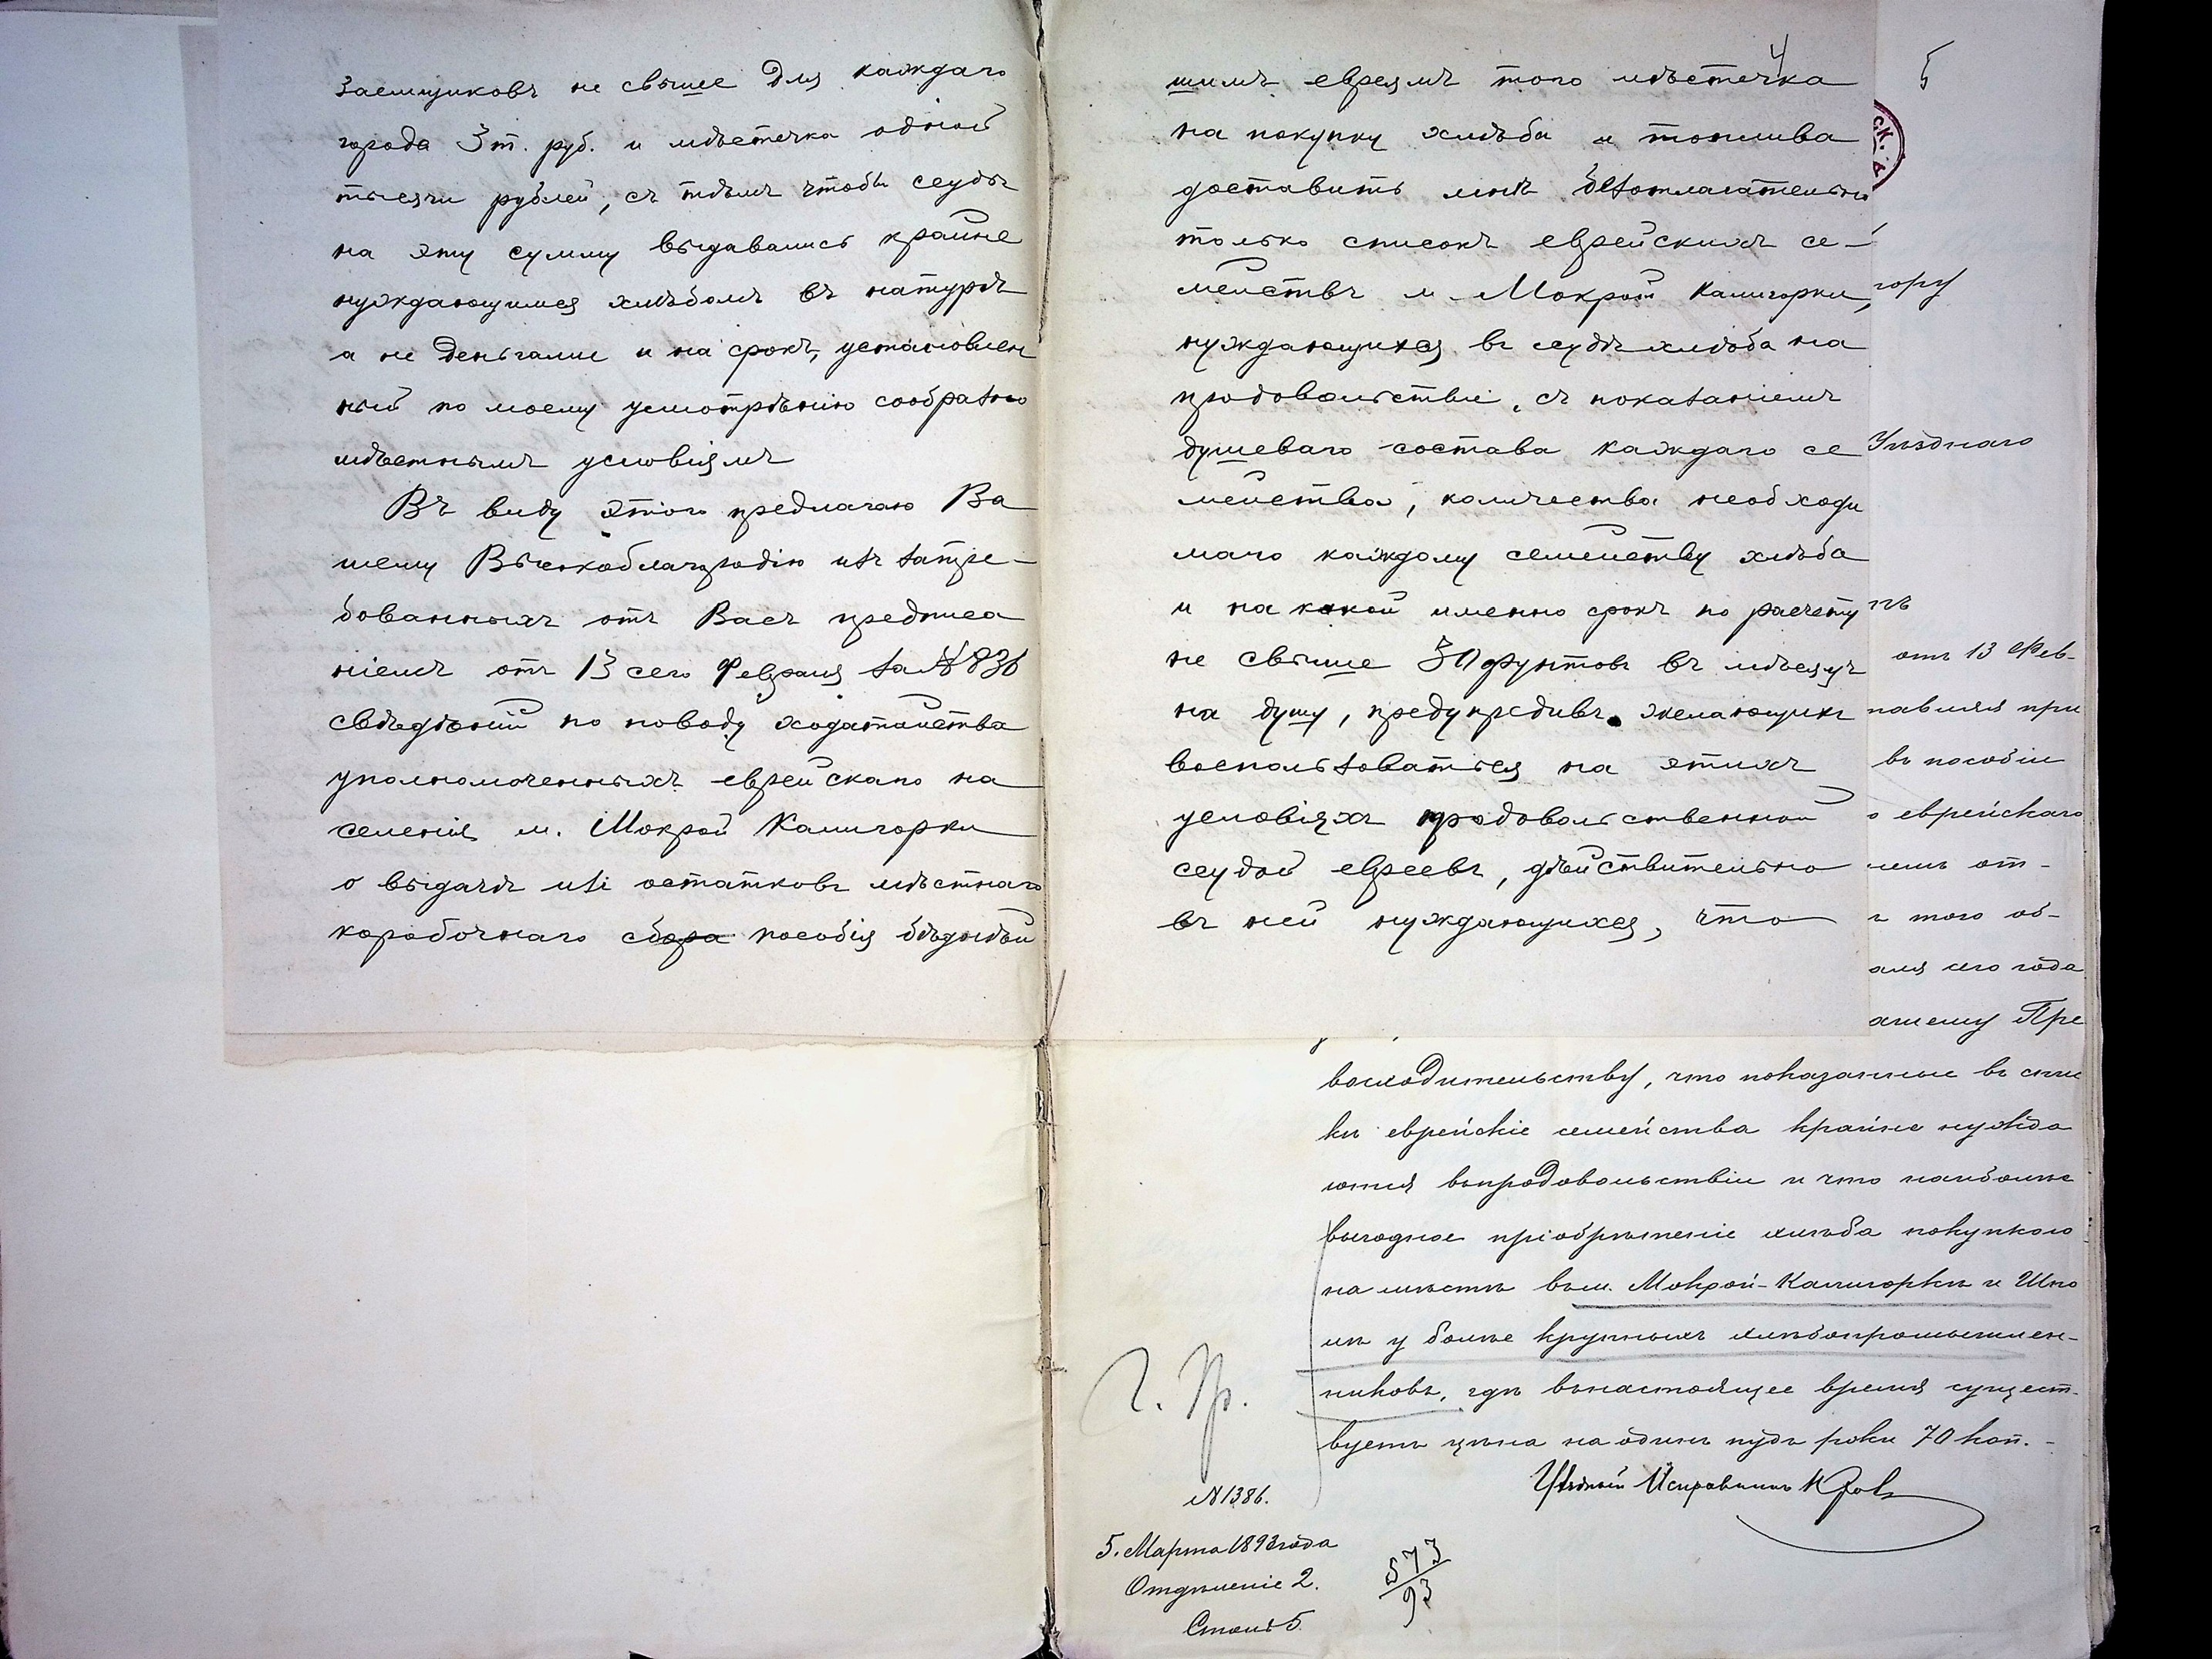 заемщиковъ не свыше для каждаго
города 3 т. руб. и мѣстечка одной
тысячи рублей, съ тѣмъ чтобы ссуды
на эту сумму выдавались крайне
нуждающимся хлѣбомъ въ натурѣ
а не деньгами и на срокъ, установлен
ный по моему усмотрѣнію сообразно
мѣстнымъ условіямъ
Въ виду этого предлагаю Ва
шему Высокоблагородію изъ затре-
бованныхъ отъ Васъ предписа
ніемъ отъ 13 сего Февраля за № 836
свѣдѣній по поводу ходатайства
уполномоченныхъ еврейскаго на
селенія м. Мокрой Калигорки
о выдачѣ изъ остатковъ мѣстнаго
коробочнаго сбора пособія бѣднѣй
4
шимъ евреямъ того мѣстечка
на покупку хлѣба и топлива
доставить мнѣ безотлагательно
только списокъ еврейскихъ се-
мействъ м. Мокрой Калигорки,
нуждающихся въ ссудѣ хлѣба на
продовольствіе, съ показаніемъ
душеваго состава каждаго се
мейства, количества необходи
маго каждому семейству хлѣба
и на какой именно срокъ по расчету
не свыше 30 фунтовъ въ мѣсяцъ
на душу, предупредивъ желающихъ
воспользоваться на этихъ
условіяхъ продовольственной
ссудой евреевъ, дѣйствительно
въ ней нуждающихся, что
5
СК. А
гору
Уѣзднаго
отъ 13 Фев-
павляя при
въ пособіи
о еврейскаго
от-
того об-
аля сего года
ашему Пре
восходительству, что показанные въ спис
кѣ еврейскіе семейства крайне нужда
ются въ продовольствіи и что наиболѣе
выгодное пріобрѣтеніе хлѣба покупкою
на мѣстѣ въ м. Мокрой-Калигоркѣ и Шпо
лѣ у болѣе крупныхъ хлѣбопромышлен-
никовъ, гдѣ въ настоящее время сущест-
вуетъ цѣна на одинъ пудъ ржи 70 коп.-
Уѣздный Исправникъ
№ 1386.
5. Марта 1893 года
Отдѣленіе 2.
Столъ 5
573
93